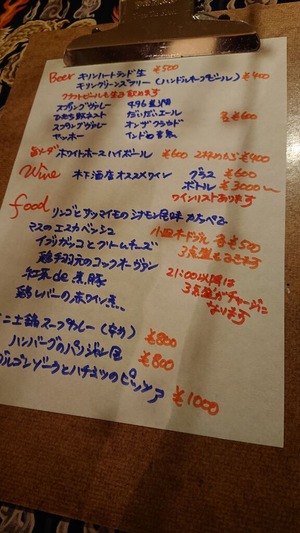 Beer キリンハートランド生 ¥500
キリングリーンズフリー(ノンアルコールビール) ¥400
クラフトビールも
スプリングバレー 496
ひたちの だいだいエール 各¥600
スプリングバレー オンザクラウド
ヤッホー インドの青鬼
ホワイトホースハイボール ¥600 2杯めから¥400
Wine 木下酒店オススメワイン グラス ¥600
ボトル ¥3000〜
ワインリストあります
food リンゴとサツマイモのシナモン風味
マスのエスカベッシュ 小皿 各¥500
イブリガッコとクリームチーズ 3点盛もできます
鶏手羽元のコックオーヴァン
紅茶de煮豚 21:00以降は
鶏レバーのポルト 3点盛がチャージに
なります
ミニ土鍋スープカレー(辛め) ¥800
ハンバーグのパリジャン風 ¥800
ゴルゴンゾーラとハチミツのピッツァ ¥1000